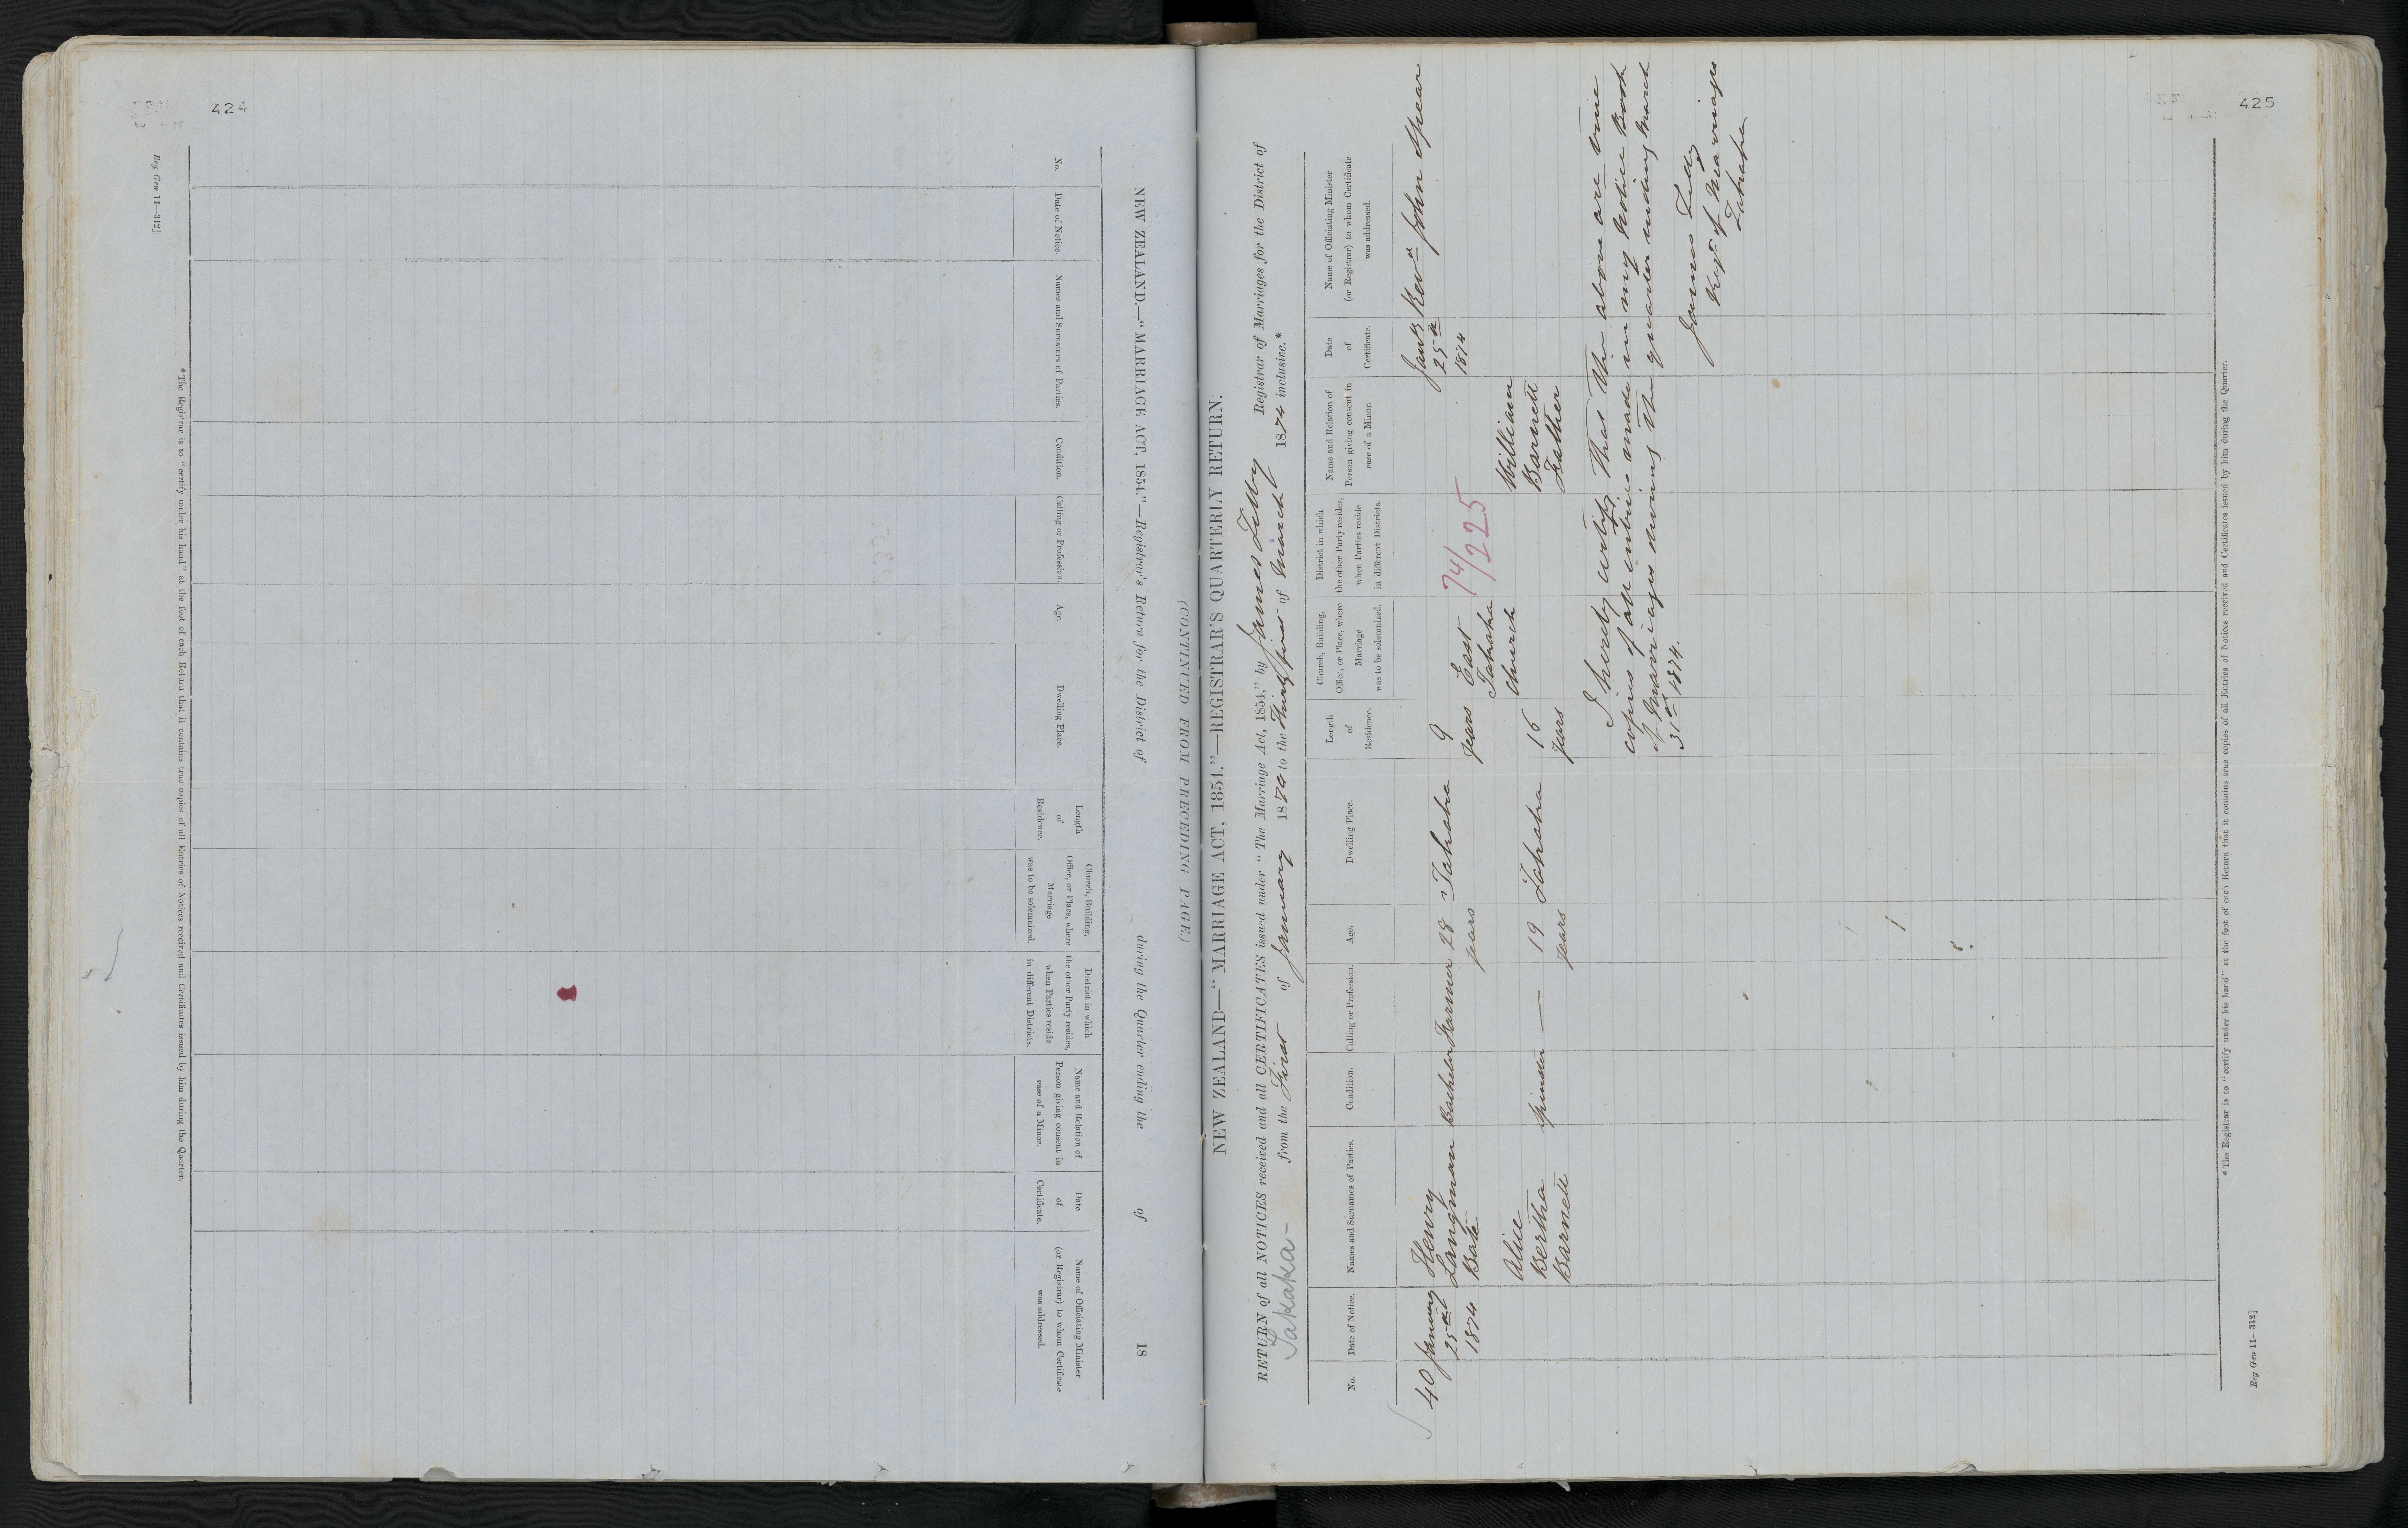 424
(CONTINUED FROM PRECEDING PAGE.)
NEW ZEALAND.—"MARRIAGE ACT, 1854."—Registrar's Return for the District of during the Quarter ending the of 18
No.
Date of Notice.
Names and Surnames of Parties.
Condition.
Calling or Profession.
Age.
Dwelling Place.
Length
of
Residence.
Church, Building,
Office, or Place, where
Marriage
was to be solemnized.
District in which
the other Party resides,
when Parties reside
in different Districts.
Name and Relation of
Person giving consent in
case of a Minor.
Date
of
Certificate.
Name of Officiating Minister
(or Registrar) to whom Certificate
was addressed.
* The Registrar is to "certify under his hand" at the foot of each Return that it contains true copies of all Entries of Notices received and Certificates issued by him during the Quarter.
Reg Gen 11—312]
425
NEW ZEALAND—"MARRIAGE ACT, 1854."—REGISTRAR'S QUARTERLY RETURN.
RETURN of all NOTICES received and all CERTIFICATES issued under "The Marriage Act, 1854," by James Lilly Registrar of Marriages for the District of
Takaka— from the First of January 1874 to the Thirty first of March 1874 inclusive.*
No.
Date of Notice.
Names and Surnames of Parties.
Condition.
Calling or Profession.
Age.
Dwelling Place.
Length
of
Residence.
Church, Building,
Office, or Place, where
Marriage
was to be solemnized.
District in which
the other Party resides,
when Parties reside
in different Districts.
Name and Relation of
Person giving consent in
case of a Minor.
Date
of
Certificate.
Name of Officiating Minister
(or Registrar) to whom Certificate
was addressed.
40
January
25th
1874
Henry
Langman
Bate
Bachelor
Farmer
28
years
Takaka
9
years
East
Takaka
Church
74/225
Jany
25th
1874
Revd John Spear
Alice
Bertha
Barnett
Spinster
—
19
years
Takaka
16
years
William
Barnett
Father
I hereby certify that the above are true
copies of all entries made in my Notice Book
of Marriages during the quarter ending March
31st 1874.
James Lilly
Regr of Marriages
Takaka
* The Registrar is to "certify under his hand" at the foot of each Return that it contains true copies of all Entries of Notices received and Certificates issued by him during the Quarter.
Reg Gen 11—312]